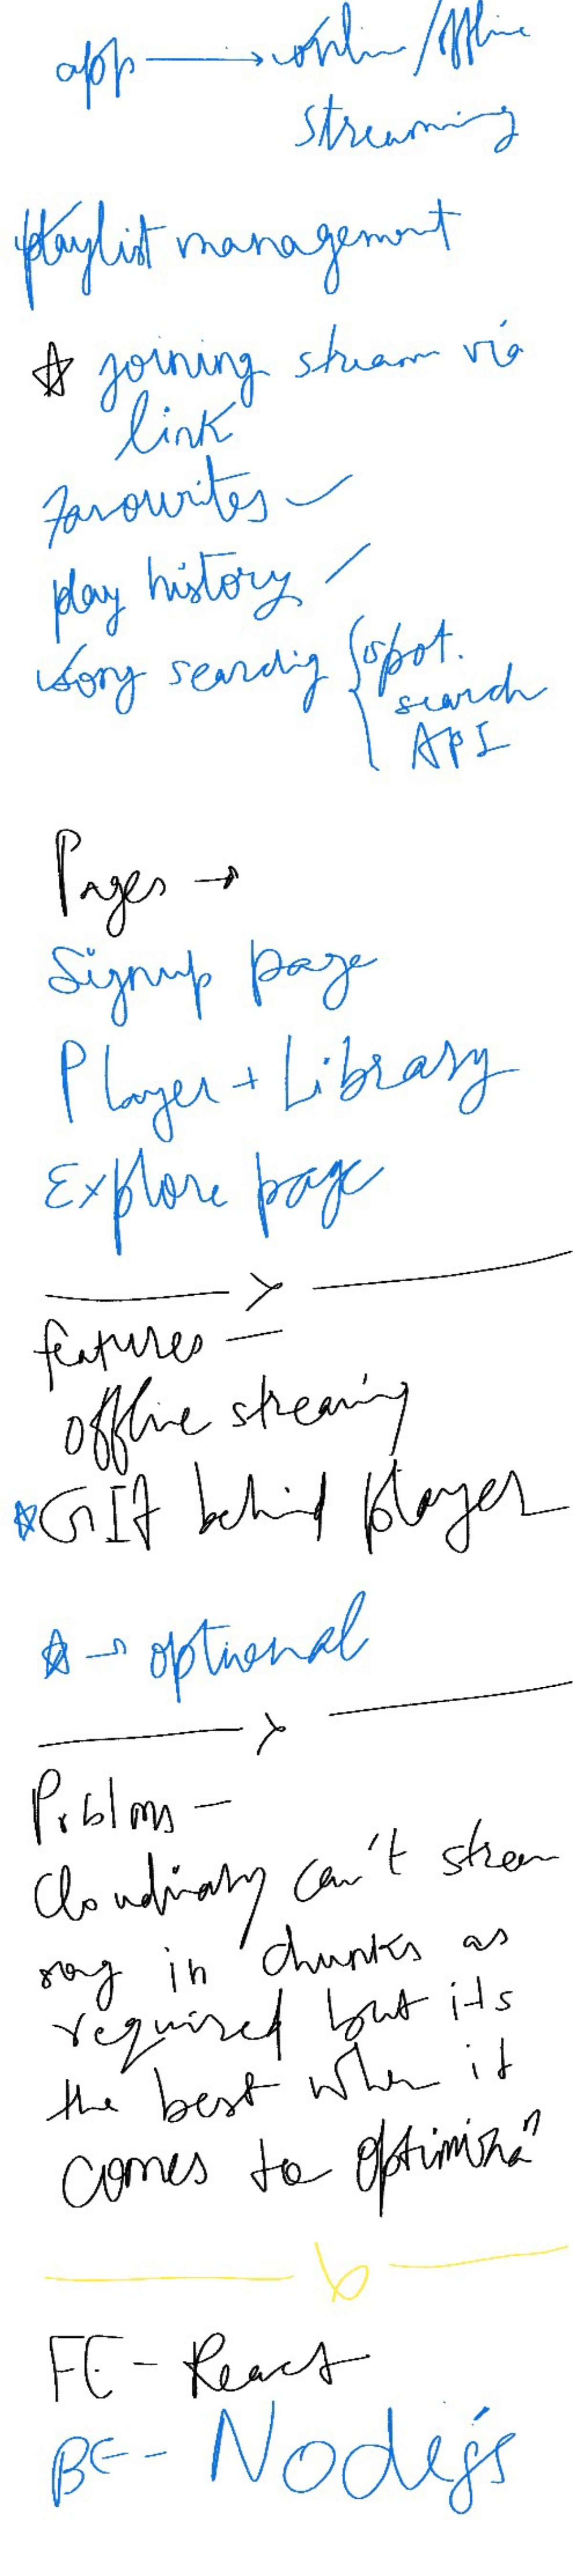 app → online/offline
streaming
playlist management
☆ joining stream via
link
Favourites ✓
play history ✓
song searching { spot.
search
API
Pages →
Signup page
Player + Library
Explore page
features —
offline streaming
☆ GIF behind player
☆ → optional
Problems —
Cloudinary can't stream
song in chunks as
required but its
the best when it
comes to optimizaⁿ
FE - React
BE - Nodejs